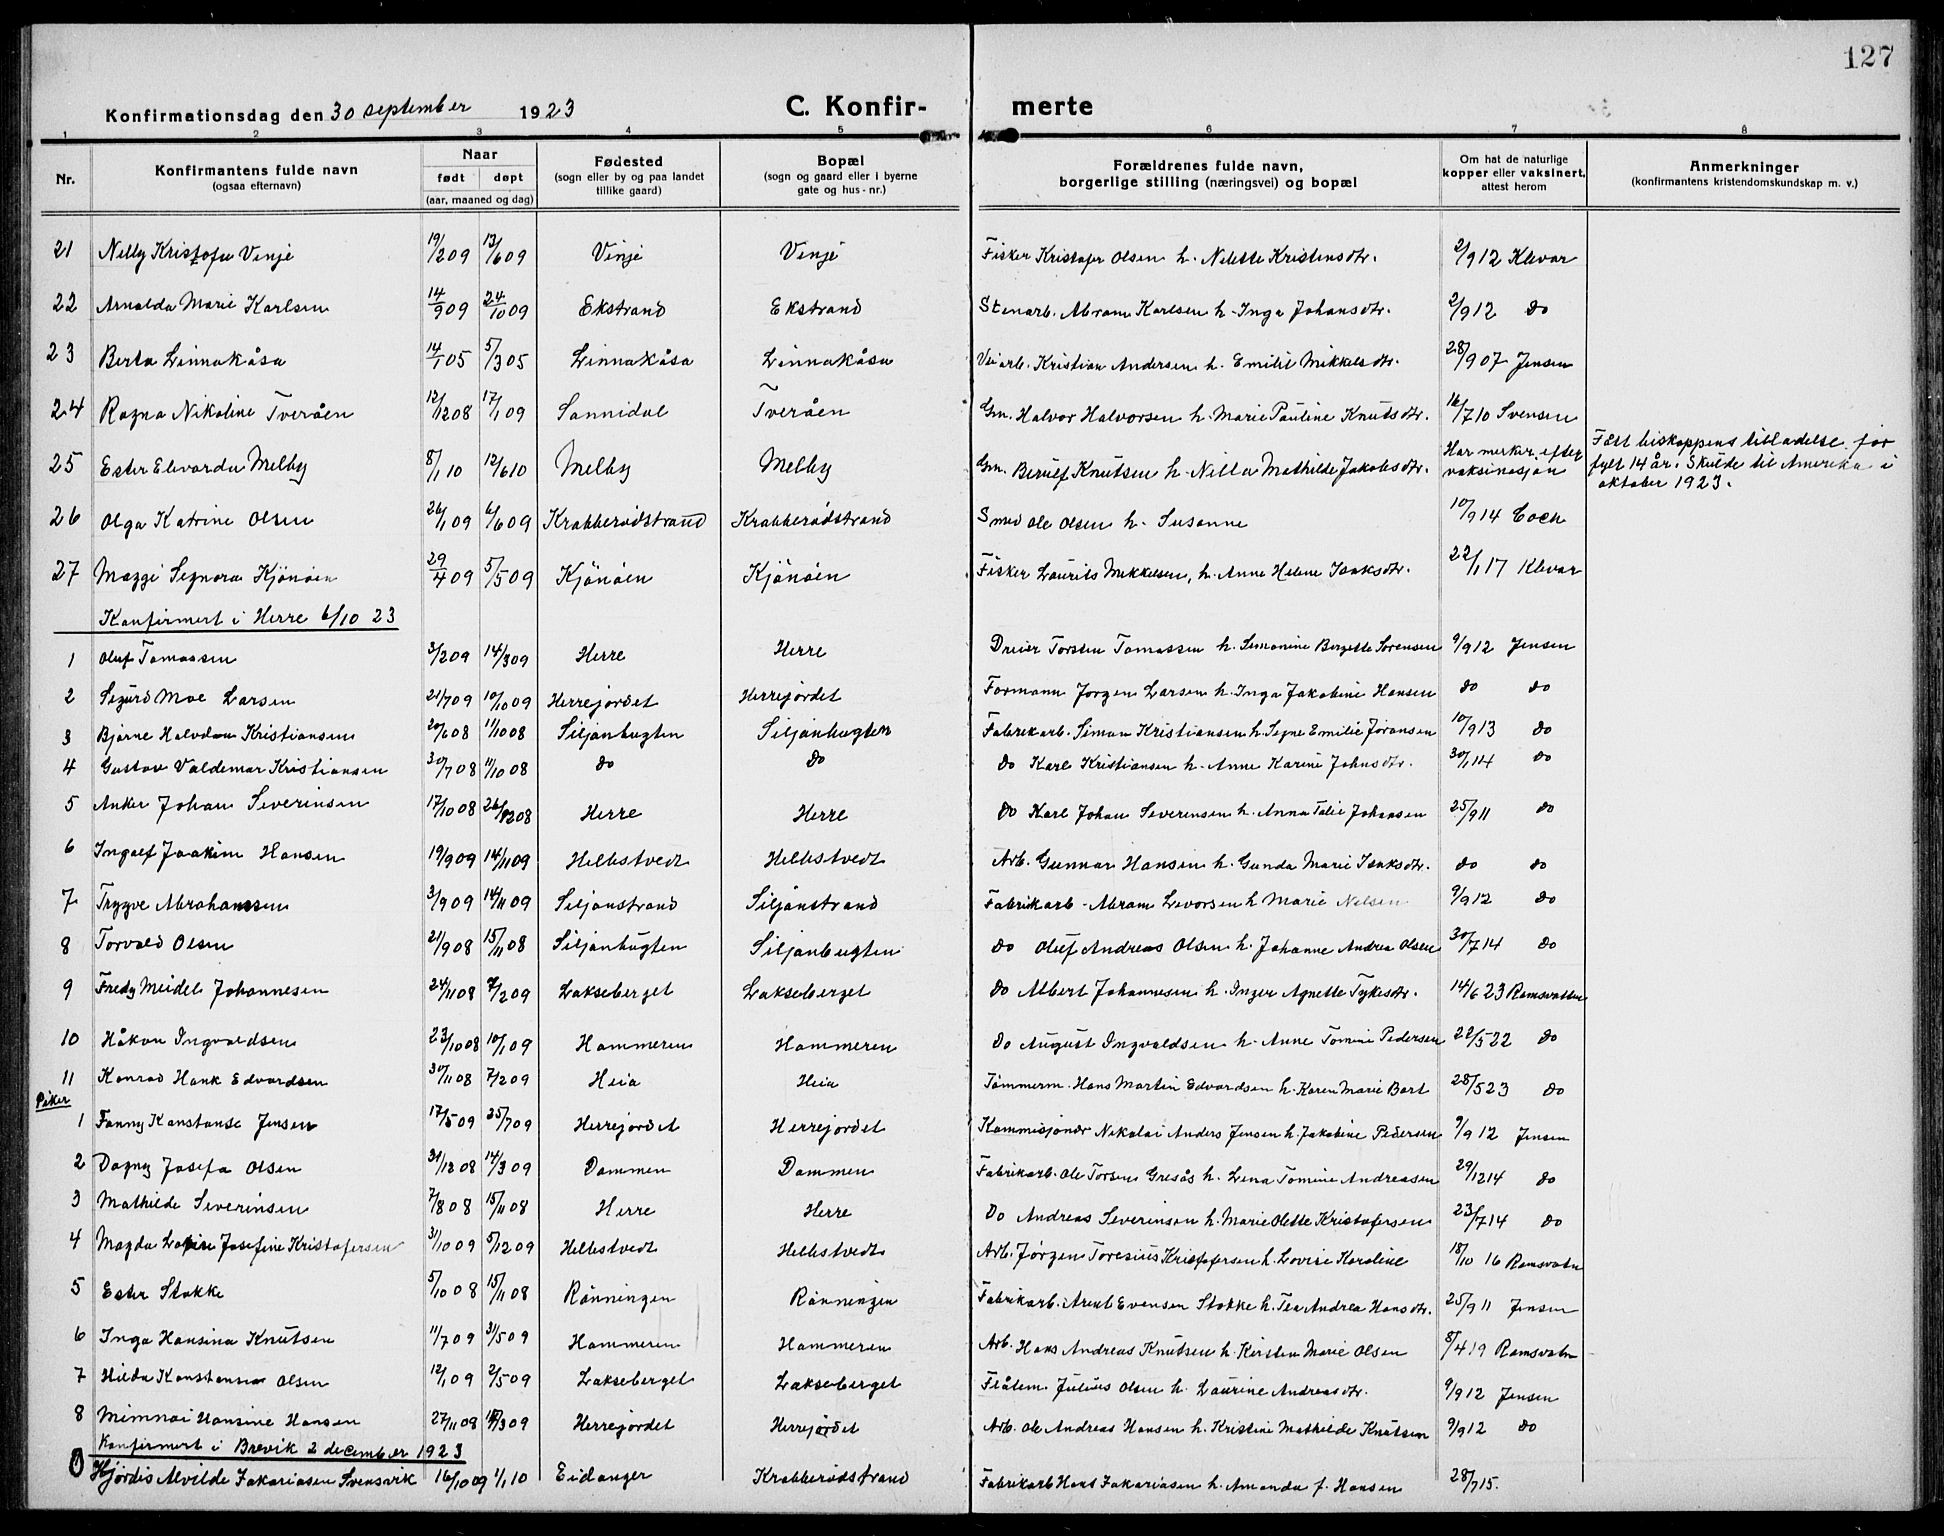 127
Konfirmationsdag den 30 september 1923 C. Konfir- merte
1 2 3 4 5 6 7 8
Nr. Konfirmantens fulde navn (ogsaa efternavn) Naar født døpt (aar, maaned og dag) Fødested (sogn eller by og paa landet tillike gaard) Bopæl (sogn og gaard eller i byerne gate og hus-nr.) Forældrenes fulde navn, borgerlige stilling (næringsvei) og bopæl Om hat de naturlige kopper eller vaksinert, attest herom Anmerkninger (konfirmantens kristendomskundskap m. v.)
21 Nelly Kristofa Vinje 19/2 09 13/6 09 Vinje Vinje Fisker Kristofer Olsen h. Nilette Kristensdtr. 2/9 12 Klevar
22 Arnalda Marie Karlsen 14/9 09 24/10 09 Ekstrand Ekstrand Stenarb. Abram Karlsen h. Inga Johansdtr. 2/9 12 do
23 Berta Linnakåsa 14/1 05 5/3 05 Linnakåsa Linnakåsa Veiarb. Kristian Andersen h. Emilie Mikkelsdtr. 28/9 07 Jensen
24 Ragna Nikoline Tveråen 12/12 08 17/1 09 Sannidal Tveråen Gm. Halvor Halvorsen h. Marie Pauline Knutsdtr. 16/7 10 Svensen
25 Ester Elevarda Melby 8/1 10 12/6 10 Melby Melby Gm. Berulf Knutsen h. Nilla Mathilde Jakobsdtr. Har merker efter vaksinasjon Fått biskoppens tilladelse før fylt 14 år. Skulde til Amerika i oktober 1923.
26 Olga Katrine Olsen 26/1 09 6/6 09 Krabberødstrand Krabberødstrand Smed Ole Olsen h. Susanne 10/9 14 Coch
27 Maggi Signora Kjønøen 29/4 09 5/5 09 Kjønøen Kjønøen Fisker Laurits Mikkelsen, h. Anne Helene Isaksdtr. 22/1 17 Klevar
Konfirmert i Herre 6/10 23
1 Oluf Tomassen 3/2 09 14/3 09 Herre Herre Dreier Torsten Tomassen h. Simonine Bergette Sørensen 9/9 12 Jensen
2 Sigurd Moe Larsen 21/7 09 10/10 09 Herrejordet Herrejordet Formann Jørgen Larsen h. Inga Jakobine Hansen do do
3 Bjarne Halvdan Kristiansen 20/6 08 11/10 08 Siljanbugten Siljanbugten Fabrikarb. Simon Kristiansen h. Signe Emilie Jøransen 10/9 13 do
4 Gustav Valdemar Kristiansen 30/7 08 11/10 08 do do do Karl Kristiansen h. Anne Karine Johnsdtr. 30/1 14 do
5 Anker Johan Severinsen 17/10 08 26/12 08 Herre Herre do Karl Johan Severinsen h. Anna Talie Johansen 25/9 11 do
6 Ingolf Joakim Hansen 19/9 09 14/11 09 Hellestvedt Hellestvedt Arb. Gunnar Hansen h. Gunda Marie Isaksdtr. do do
7 Trygve Abrahamsen 3/9 09 14/11 09 Siljanstrand Siljanstrand Fabrikarb. Abram Levorsen h. Marie Nilsen 9/9 12 do
8 Torvald Olsen 21/9 08 15/11 08 Siljanbugten Siljanbugten do Oluf Andreas Olsen h. Johanne Andrea Olsen 30/7 14 do
9 Fredy Meidel Johannesen 24/11 08 7/2 09 Lakseberget Lakseberget do Albert Johannesen h. Inger Agnette Tykesdtr. 14/6 23 Ramsvatten
10 Håkon Ingvaldsen 23/10 08 10/1 09 Hammeren Hammeren do August Ingvaldsen h. Anne Tomine Pedersen 22/5 22 do
11 Konrad Hank Edvardsen 30/11 08 7/2 09 Heia Heia Tømmerm. Hans Martin Edvardsen h. Karen Marie Bart 28/5 23 do
Piker
1 Fanny Konstanse Jensen 17/5 09 25/7 09 Herrejordet Herrejordet Kommisjonær Nikolai Anders Jensen h. Jakobine Pedersen 9/9 12 Jensen
2 Dagny Josefa Olsen 31/12 08 14/3 09 Dammen Dammen Fabrikarb. Ole Torsen Gresås h. Lena Tomine Andreasen 29/12 14 do
3 Mathilde Severinsen 7/8 08 15/11 08 Herre Herre Do Andreas Severinsen h. Marie Olette Kristofersen 23/7 14 do
4 Magda Josefine Kristofersen 31/10 09 5/12 09 Hellestvedt Hellestvedt Arb. Jørgen Toresius Kristofersen h. Lovise Karoline 18/10 16 Ramsvatn
5 Ester Stokke 5/10 08 15/11 08 Rønningen Rønningen Fabrikarb. Arent Evensen Stokke h. Tea Andrea Hansdtr. 25/9 11 Jensen
6 Inga Hansina Knutsen 11/7 09 31/5 09 Hammeren Hammeren Arb. Hans Andreas Knutsen h. Kirsten Marie Olsen 8/4 19 Ramsvatn
7 Hilda Konstanse Olsen 12/1 09 2/5 09 Lakseberget Lakseberget Flåtem. Julius Olsen h. Laurine Andreasdtr. 9/9 12 Jensen
8 Mimmi Hansine Hansen 27/11 08 14/3 09 Herrejordet Herrejordet Arb. Ole Andreas Hansen h. Kristine Mathilde Knutsen 9/9 12 do
Konfirmert i Brevik 2 december 1923
Hjørdis Alvilde Zakariasen Svensvik 16/10 09 1/1 10 Eidanger Krabberødstrand Fabrikarb Hans Zakariasen h. Amanda f. Hansen 28/7 15.